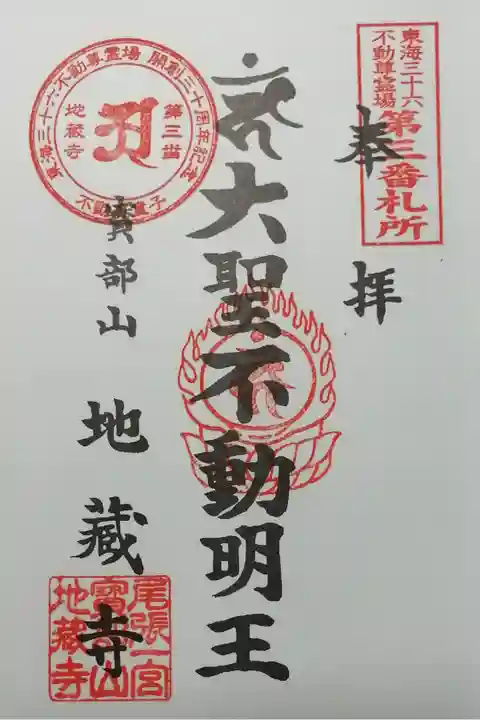 東海三十六
不動尊霊場
第三番札所
奉拝
大聖不動明王
不動尊霊場 開創三十周年記念
第三番
地蔵寺
寳部山
地蔵寺
尾張一宮
寳部山
地蔵寺